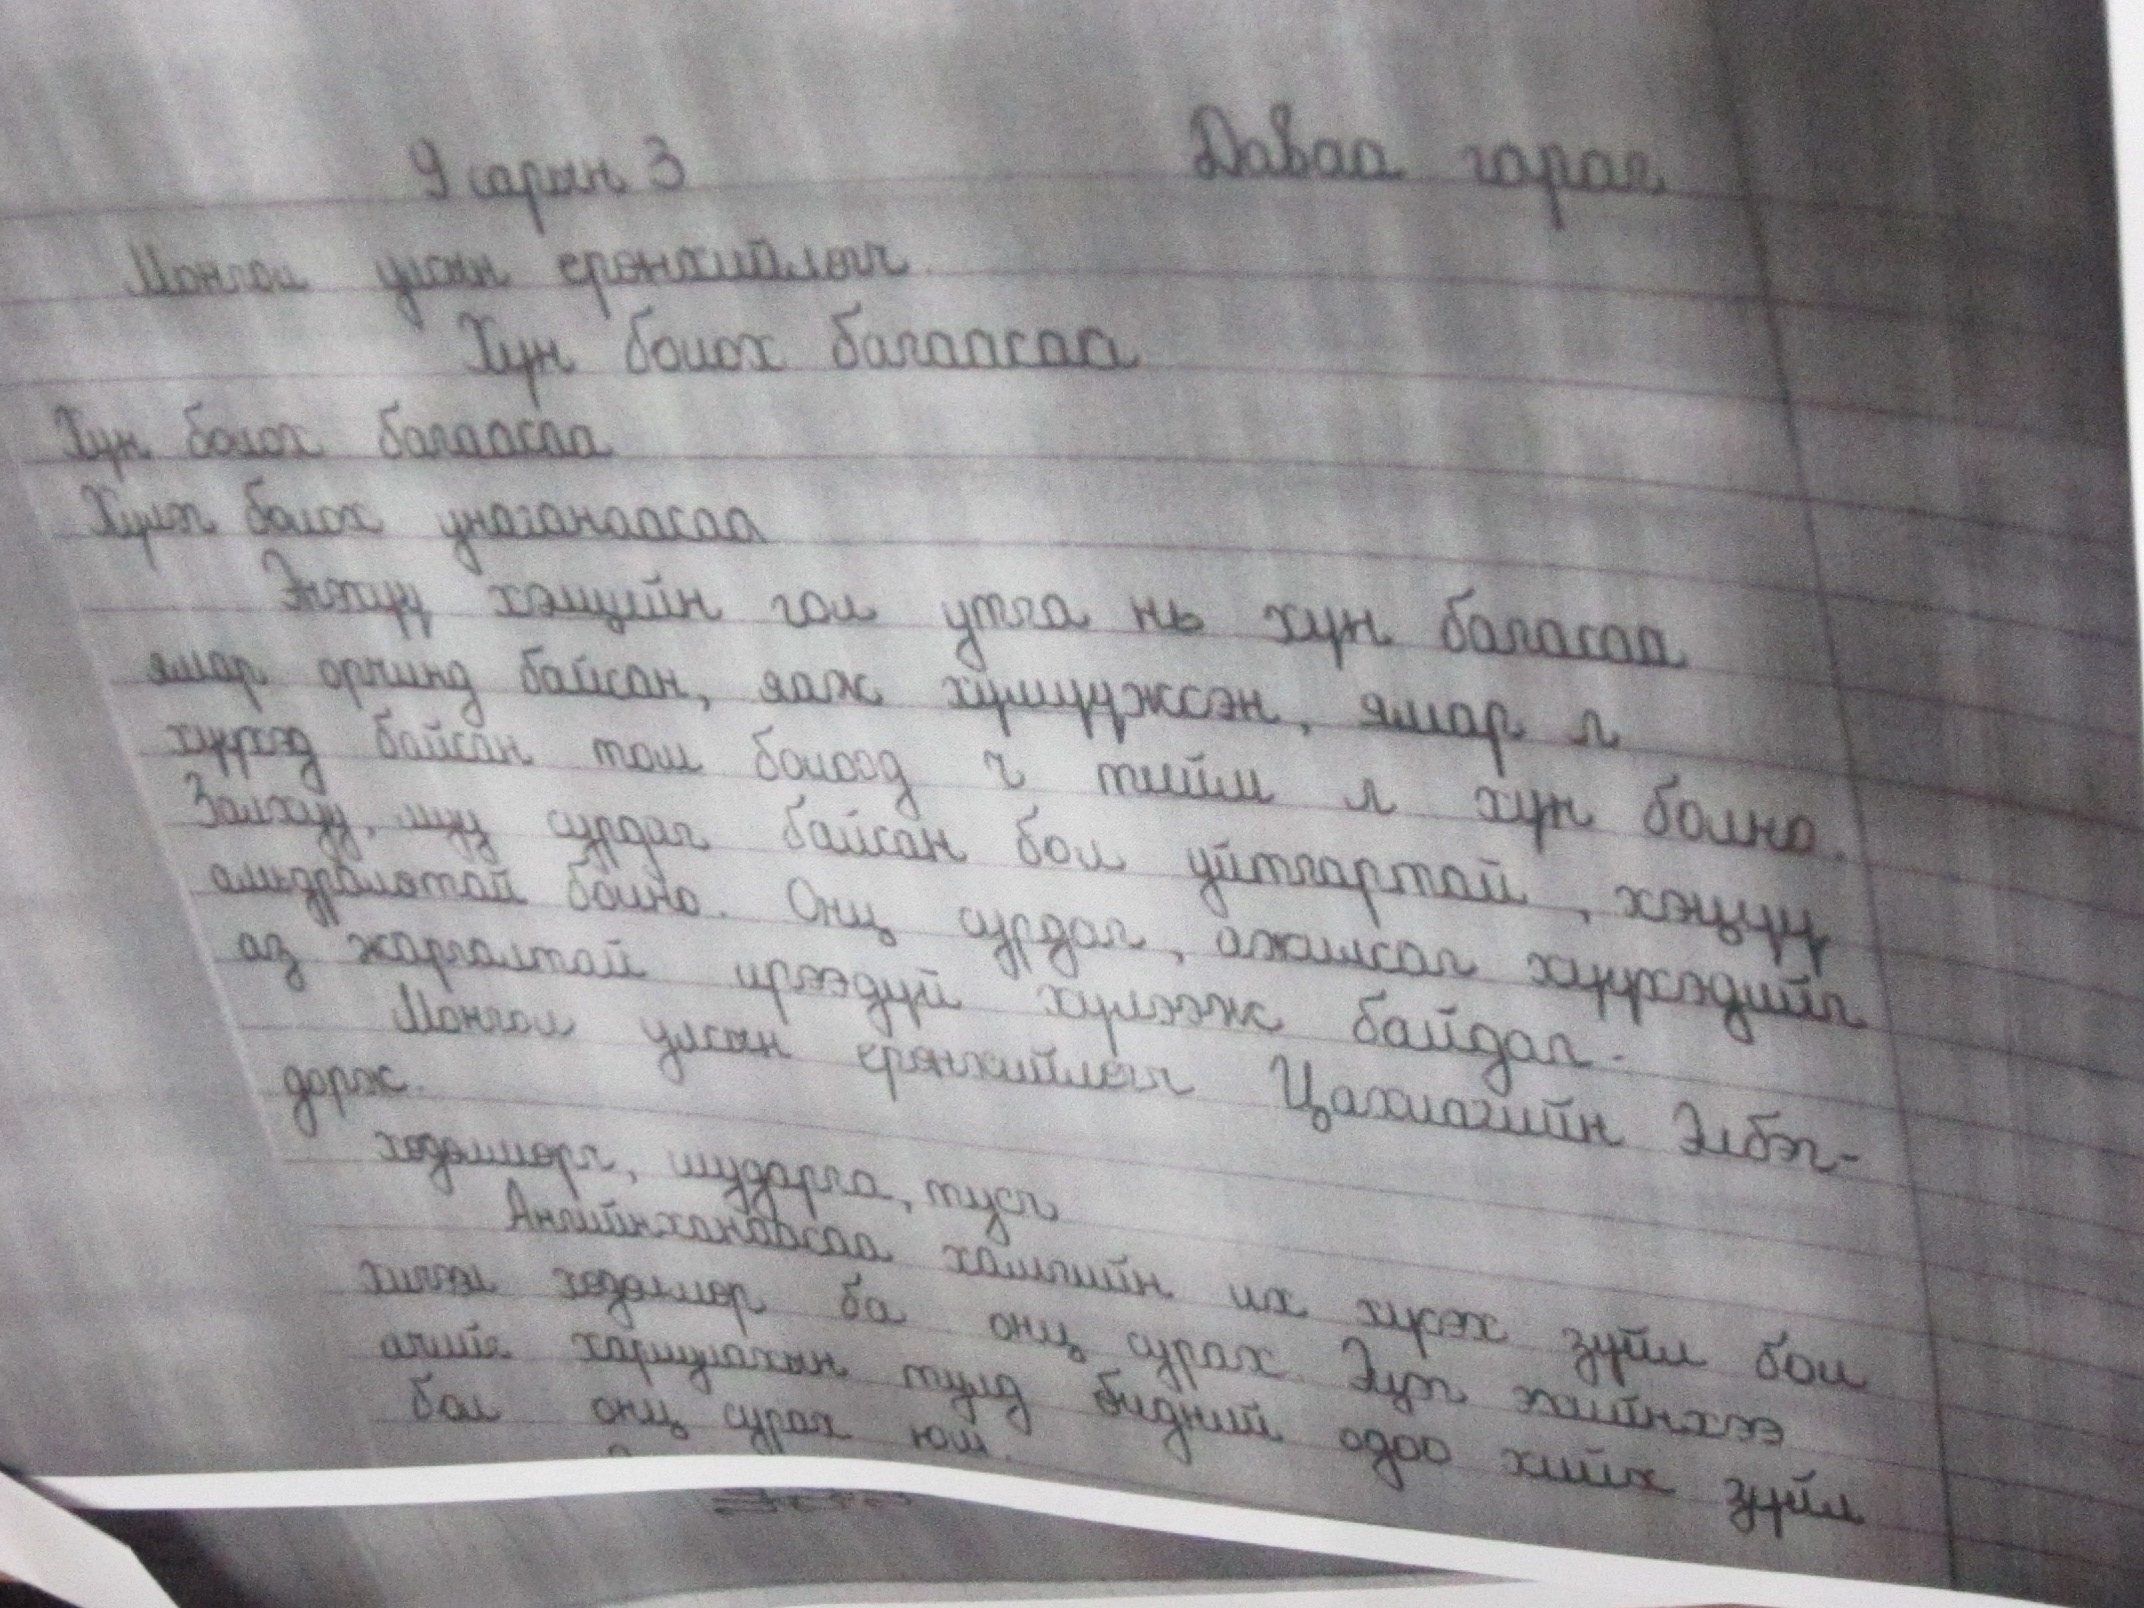 9 сарын 3 Даваа гараг
Монгол улсын ерөнхийлөгч
Хүн болох багаасаа
Хүн болох багаасаа
Хүлэг болох унаганаасаа
Энэхүү хэлцийн гол утга нь хүн багасаа
ямар орчинд байсан, яаж хүмүүжсэн, ямар л
хүүхэд байсан том болоод ч тийм л хүн болно.
Залхуу, муу сурдаг байсан бол уйтгартай, хэцүү
амьдралтай болно. Онц сурдаг, ажилсаг хүүхэдийг
аз жаргалтай ирээдүй хүлээж байдаг.
Монгол улсын ерөнхийлөгч Цахиагийн Элбэг-
дорж.
хөдөлмөрч, шударга, тусч
Ангийнханаасаа хамгийн их хүсэх зүйл бол
хичээл хөдөлмөр ба онц сурах. Эцэг эхийнхээ
ачийг хариулахын тулд бидний одоо хийх зүйл
бол онц сурах юм.